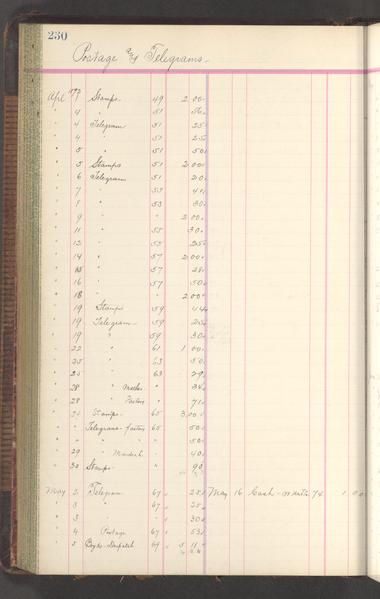 230
Postage and Telegrams
Apl 1 Stamps 49 2 00
" 4 " 51 50
" 4 Telegram 51 25
" 4 " 51 25
" 5 " 51 50
" 5 Stamps 51 2 00
" 6 Telegram 51 20
" 7 " 53 40
" 8 " 53 30
" 9 " " 2 00
" 11 " 55 30
" 12 " 55 25
" 14 " 57 2 00
" 15 " 57 28
" 16 " 57 50
" 18 " " 2 00
" 19 Stamps 59 44
" 19 Telegram 59 25
" 19 " 59 30
" 22 " 61 1 00
" 25 " 63 50
" 25 " 63 29
" 28 " " 34
" 28 " " 71
" Stamps 65 3 00
" " Telegrams 65 50
" " " " 50
" 29 " " 40
" 30 Stamps " 90
May 2 Telegram 67 25 May 16 Cash 74 1 00
" 3 " 67 25
" 3 " " 30
" 4 Postage 67 53
" 5 Dispatch 69 5 11